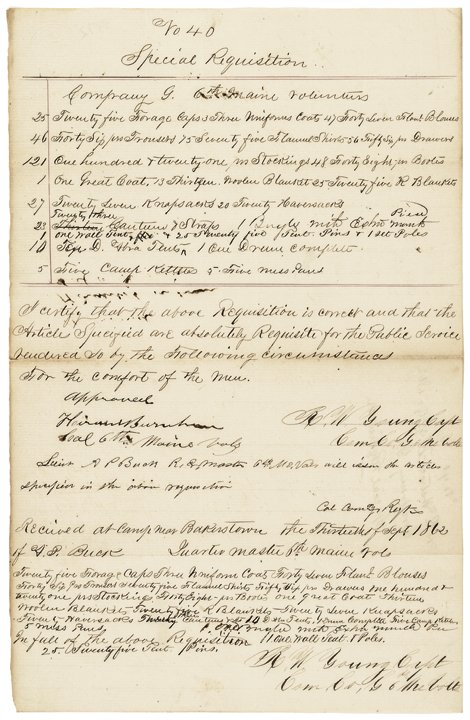 No 40
Special Requisition
Company G. 6th Maine volunteers
25 Twenty five Forage Caps 3 Three Uniforms Coats 47 Forty Seven Flanl Blouses
46 Forty Six prs Trousers 75 Seventy five Flannel Shirts 56 Fifty Six prs Drawers
121 One hundred & twenty one, prs Stockings 48 Forty Eight prs Bootes
1 One Great Coat, 13 Thirteen. Woolen Blanket 25 Twenty five R Blankets
27 Twenty Seven Knapsacks 20 Twenty Haversacks
Twenty three
23 Canteens & Straps 1 Bugle with Extra Piece
One Wall Tent & 25 Twenty five Tent. Pins & 1 Set Poles
10 D. Tents 1 One Drum Complete
5 Five Camp Kettles 5 Five mess Pans
I certify that the above Requisition is correct and that the
Article Specified are absolutely Requisite for the Public Service
rendered So by the Following circumstances
For the comfort of the men.
Approved
Hiram Burnham
Col 6th Maine Vols
R. W. Young Capt
Com. C. G.
Lieut A P Buck R. Q. Master 6th Me Vols will issue the articles
specified in the above requisition
Col Comdg Regt
Received at Camp near Bakerstown the Thirtieth of Sept 1862
of A. P. Buck Quarter master 6th Maine Vols
Twenty five Forage Caps Three Uniform Coat Forty Seven Flanl Blouses
Forty Six Prs Trousers Seventy five Flannel Shirts Fifty Six prs Drawers One hundred &
twenty one prs Stocking Forty Eight prs Bootes One great Coat Thirteen
Woolen Blankets Twenty five R Blankets Twenty Seven Knapsacks
Twenty Haversacks Canteens 10 D Tent, 1 Drum Complete Five Camp Kettles
5 mess Pans 1 Bugle with Extra
In full of the above Requisition 1 One Wall Tent. 1 Poles.
25. Twenty five Tent Pins.
R W Young Capt
Com, Co, G